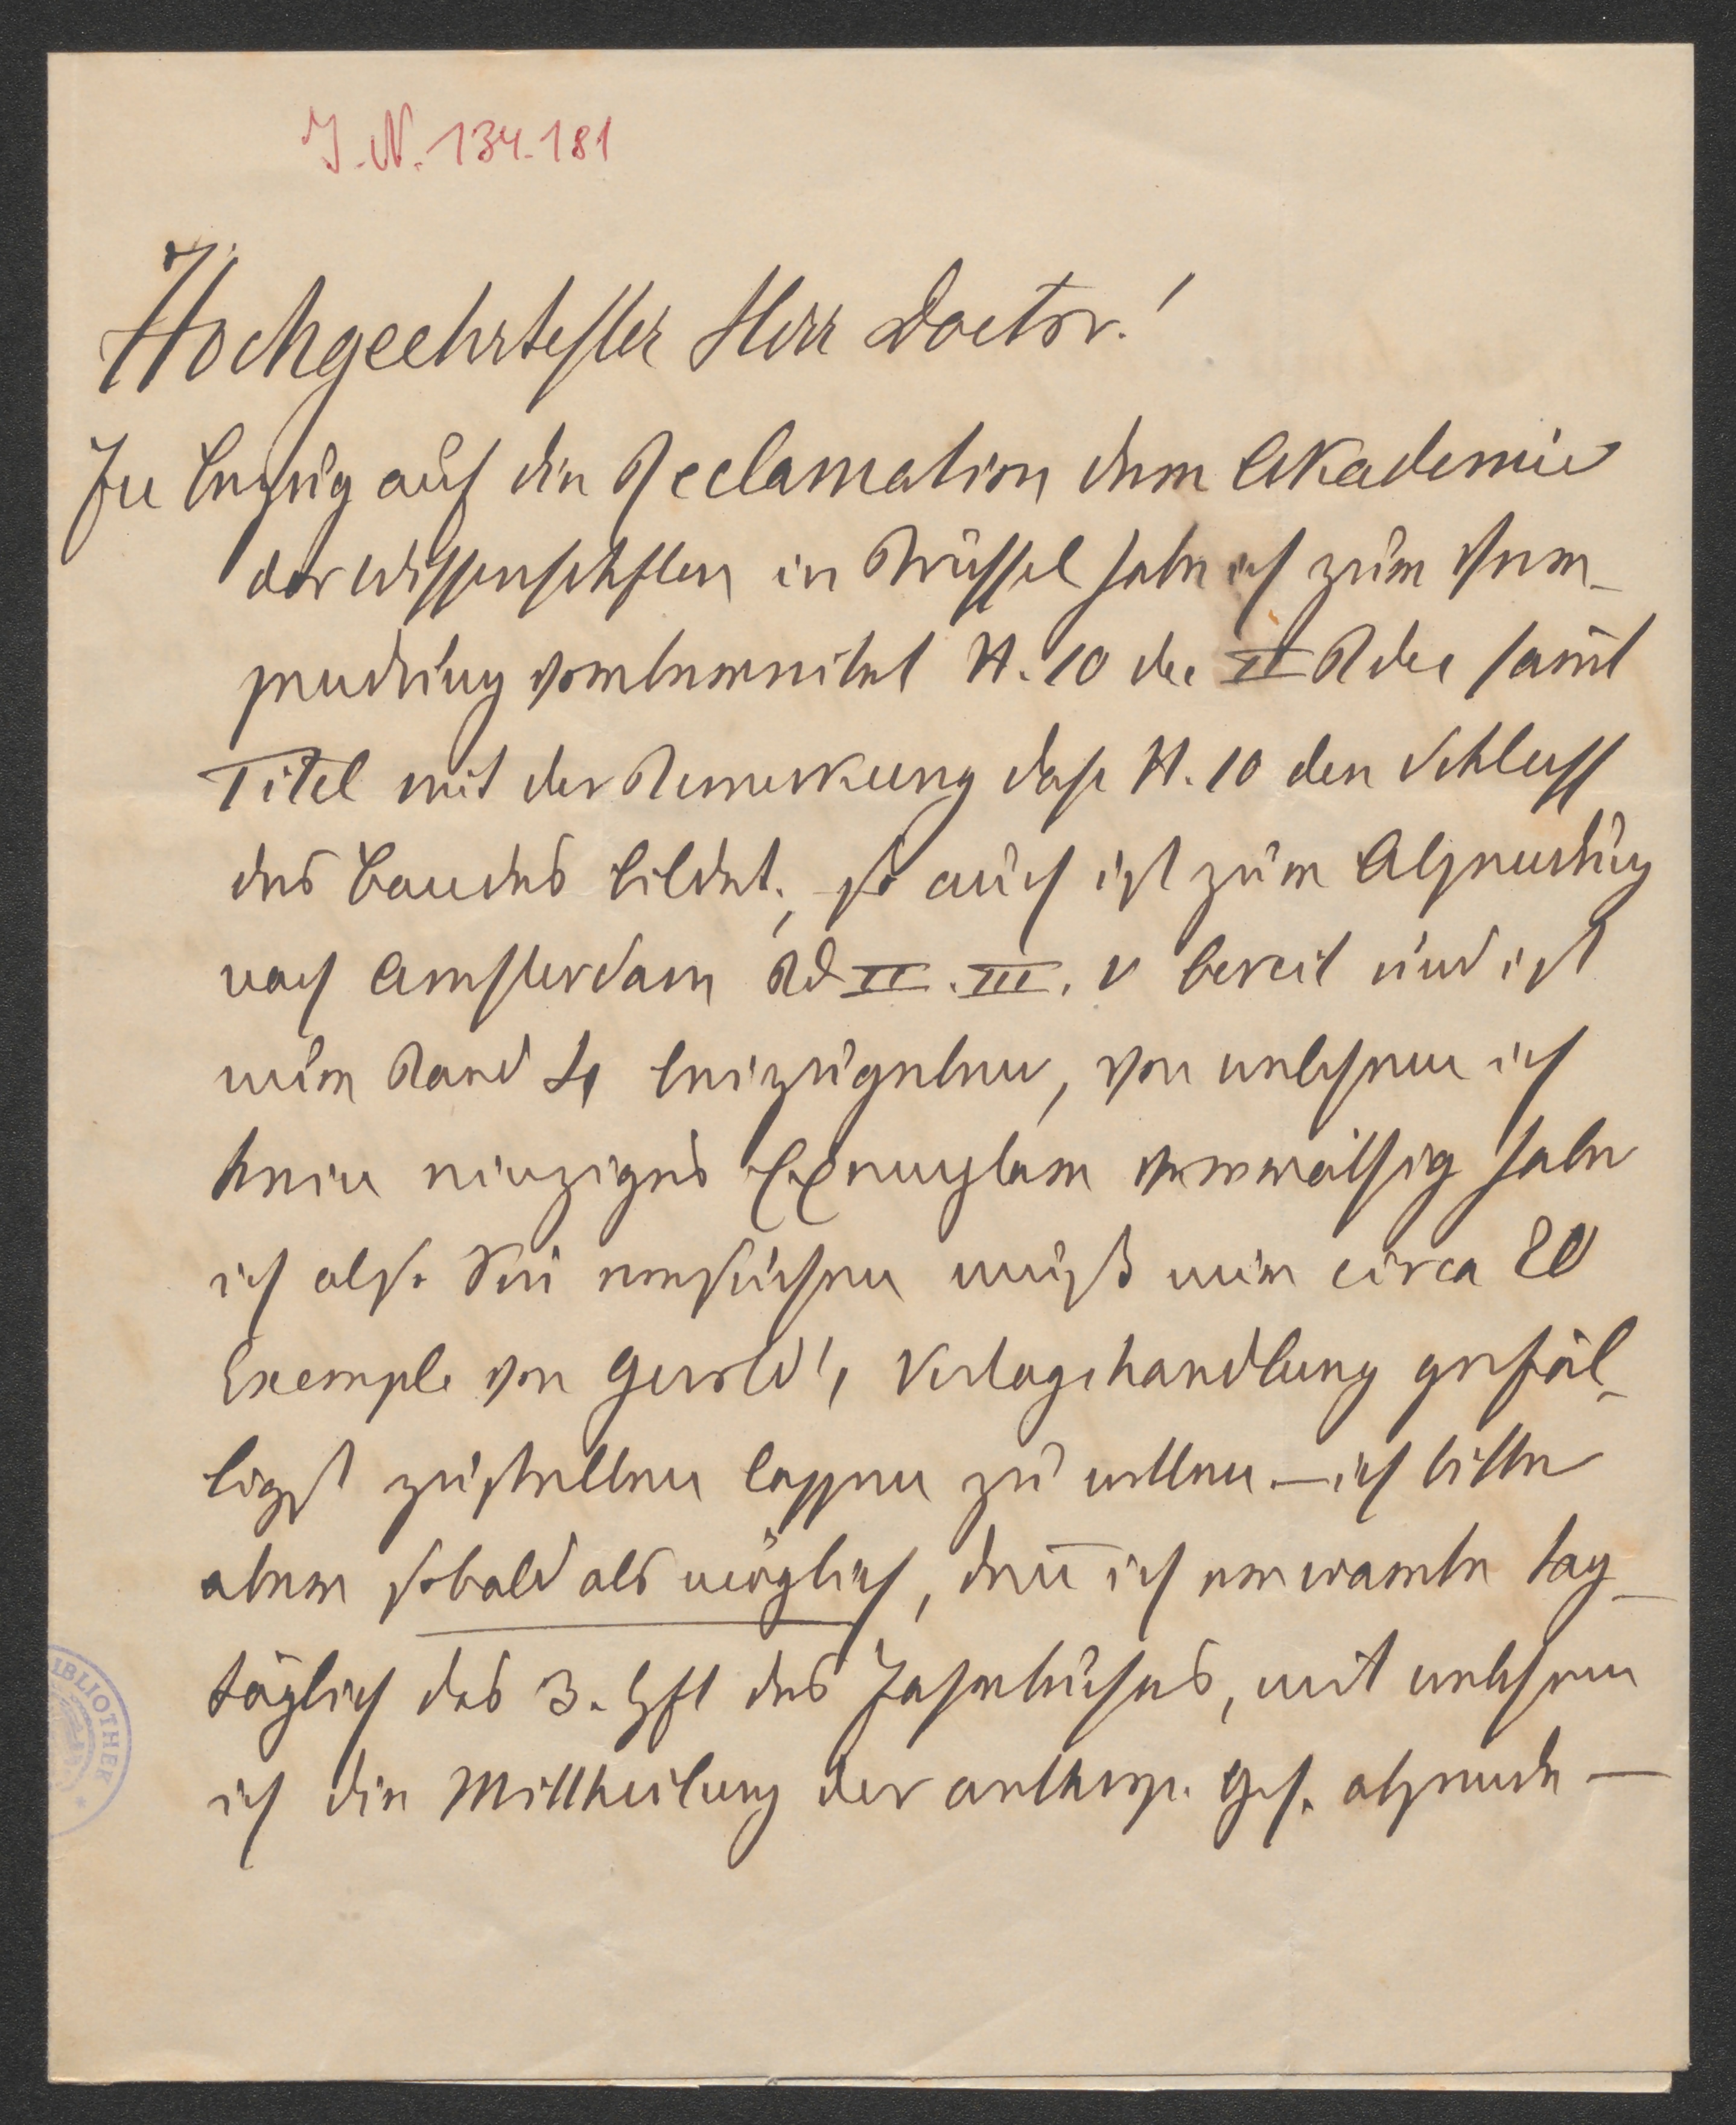 J.N. 134.181
Hochgeehrtester Herr Doctor!
In Bezug auf die Reclamation der Akademie
der Wissenschften in Brüssel habe ich zum Ver-
sendung vorbereitet H. 10 des II Bdes samt
Titel mit der Bemerkung dass H. 10 den Schluss
des Bandes bildet, so auch ist zur Absendung
nach Amsterdam Bd II. III. V bereit und ist
nur Band 4 beizugeben, von welchem ich
kein einziges Exemplar vorräthig habe
ich also Sie ersuchen muß mir circa 20
Exemple von Gerold's Verlagshandlung gefäl-
ligst zustellen lassen zu wollen – ich bitte
aber sobald als möglich, denn ich erwarte tag-
täglich das 3. Hft des Jahrbuches, mit welchem
ich die Mittheilung der anthrop. Ges. absende –
BIBLIOTHEK